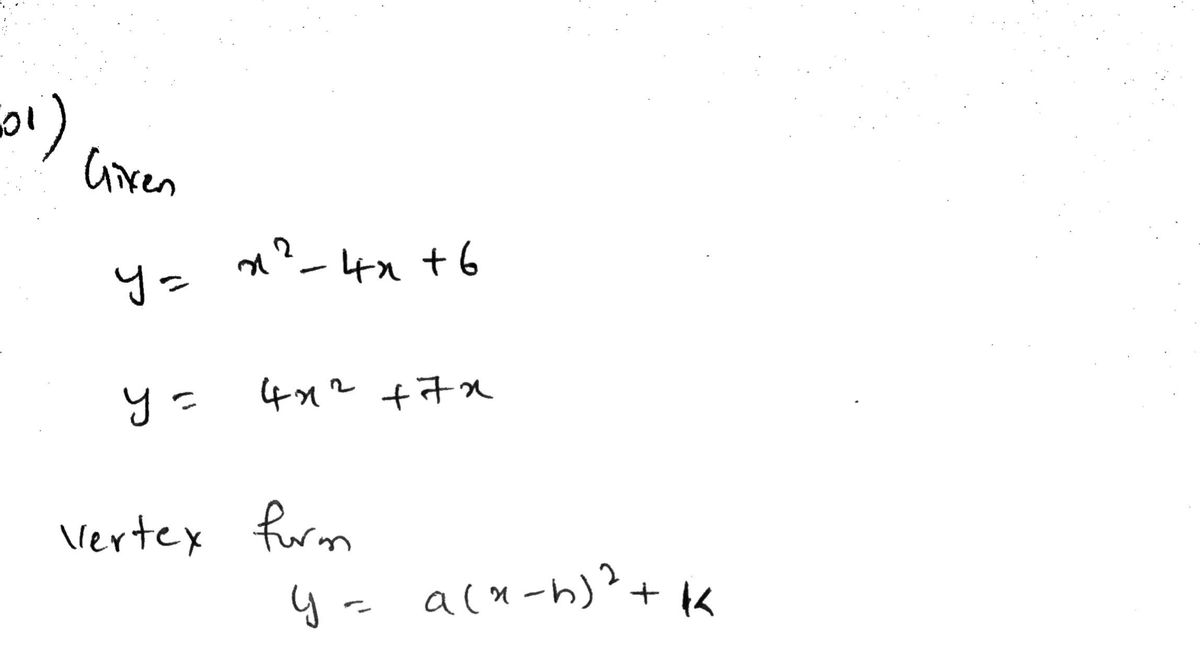 01)
Given
y = x² - 4x + 6
y = 4x² + 7x
Vertex form
y = a(x-h)² + k